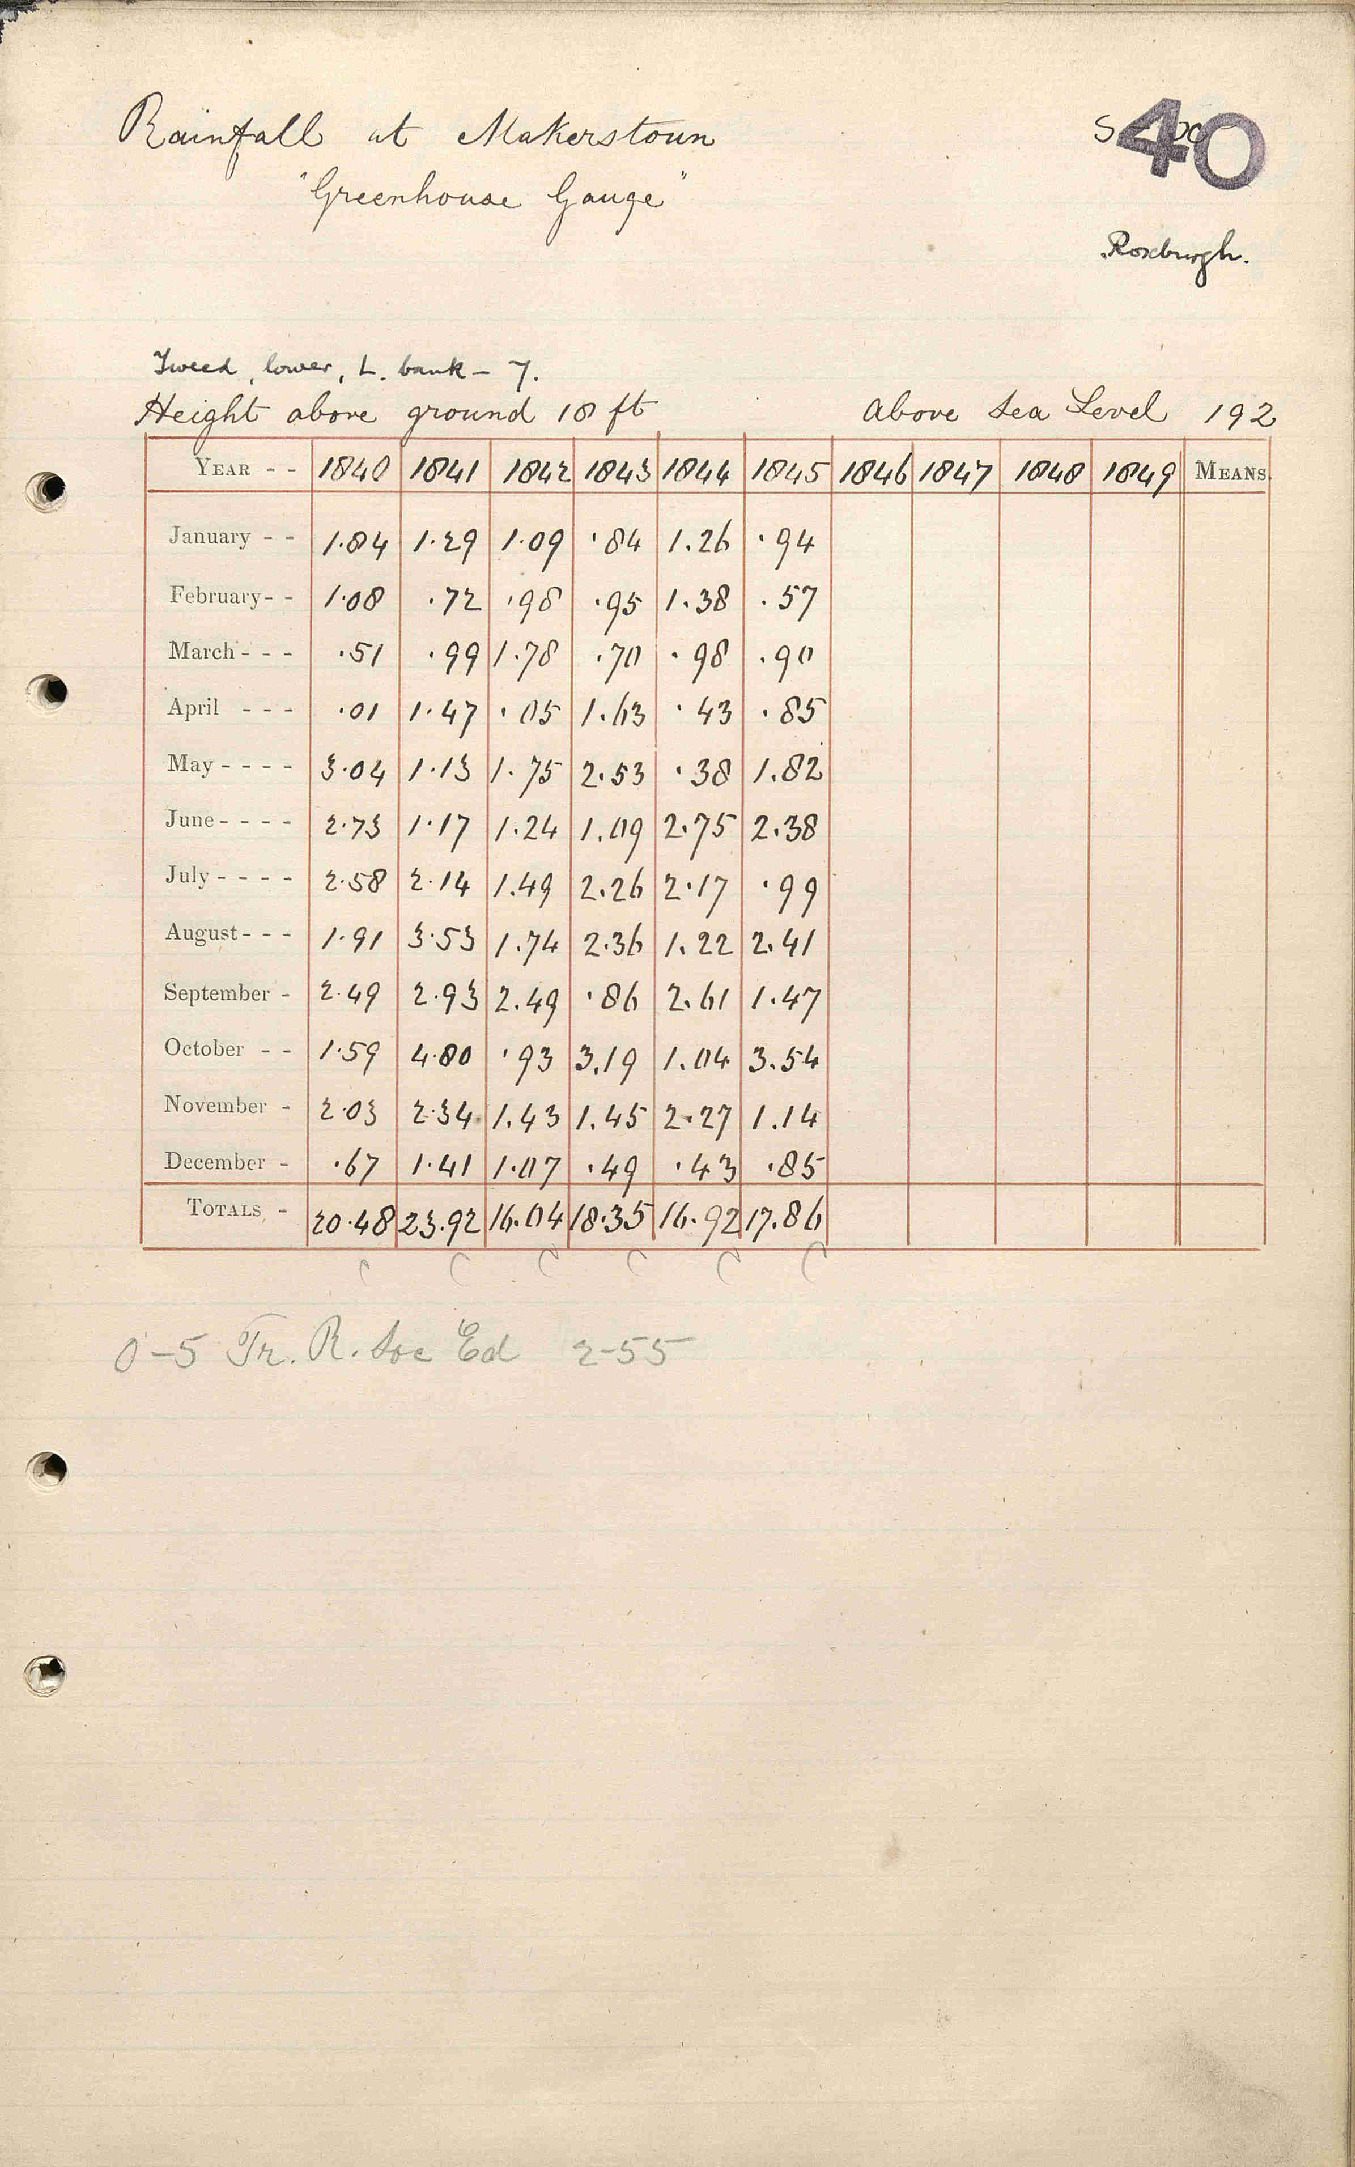 Rainfall at Makerstoun
40
"Greenhouse Gauge"
Roxburgh.
Tweed, lower, L. bank - 7.
Height above ground 18 ft above Sea Level 192
YEAR - - 1840 1841 1842 1843 1844 1845 1846 1847 1848 1849 MEANS.
January - - 1.84 1.29 1.09 .84 1.26 .94
February - - 1.08 .72 .98 .95 1.38 .57
March - - - .51 .99 1.78 .70 .98 .90
April - - - .01 1.47 .05 1.63 .43 .85
May - - - - 3.04 1.13 1.75 2.53 .38 1.82
June - - - - 2.73 1.17 1.24 1.09 2.75 2.38
July - - - - 2.58 2.14 1.49 2.26 2.17 .99
August - - - 1.91 3.53 1.74 2.36 1.22 2.41
September - 2.49 2.93 2.49 .86 2.61 1.47
October - - 1.59 4.80 .93 3.19 1.04 3.54
November - 2.03 2.34 1.43 1.45 2.27 1.14
December - .67 1.41 1.07 .49 .43 .85
TOTALS - 20.48 23.92 16.04 18.35 16.92 17.86
0-5 Tr. R. Soc Ed 2-55